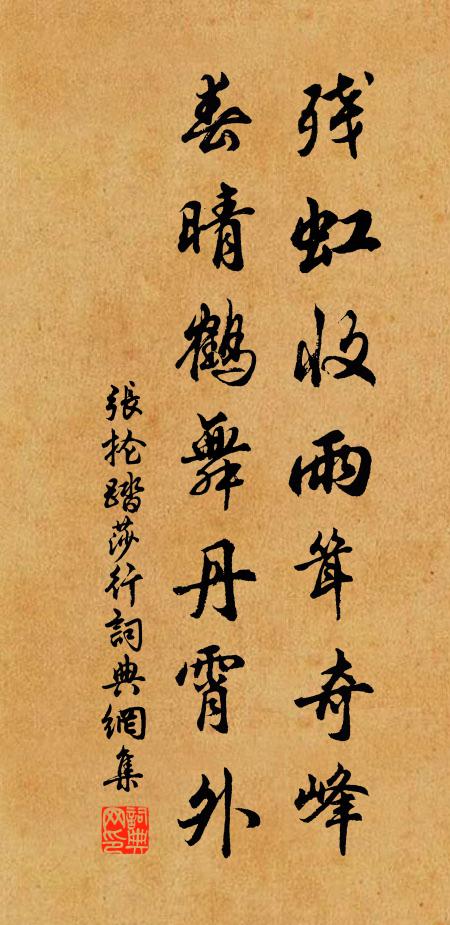 残虹收雨耸奇峰
春晴鶴舞丹霄外
張掄踏莎行詞典網集
詞典网印